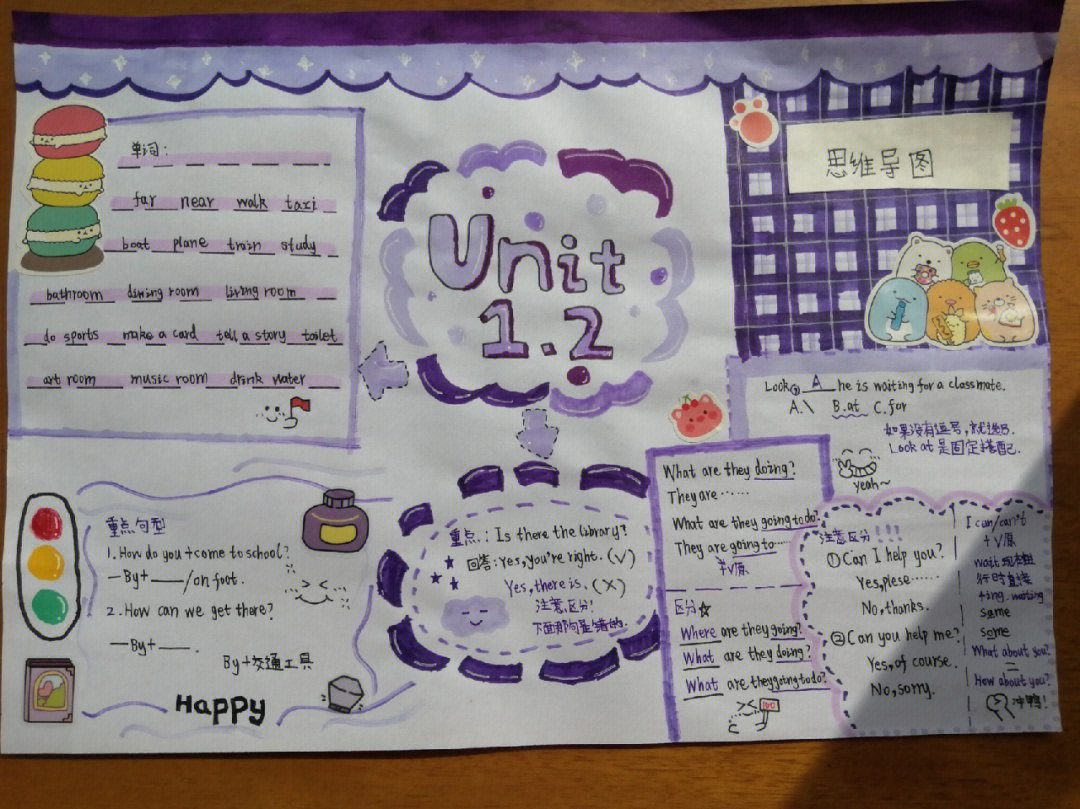 思维导图
Unit
1.2
单词:
far near walk taxi
boat plane train study
bathroom dinning room living room
do sports make a card tell a story toilet
art room music room drink water
重点句型
1. How do you +come to school?
—By+___/on foot.
2. How can we get there?
—By+___.
By+交通工具
Happy
重点.: Is there the library?
回答: Yes, you're right. (√)
Yes, there is. (×)
注意区分!
下面那句是错的.
What are they doing?
They are ……
What are they going to do?
They are going to ……
+V原
区分☆
Where are they going?
What are they doing?
What are they going to do?
100
Look, A he is waiting for a classmate.
A.\ B.at C.for
如果没有逗号,就选B.
Look at 是固定搭配.
yeah~
注意区分!!!
①Can I help you?
Yes, plese……
No, thanks.
②Can you help me?
Yes, of course.
No, sorry.
I can/can't
+V原
wait 现在进
行时直接
+ing. waiting
same
some
What about you?
=
How about you?
冲鸭!